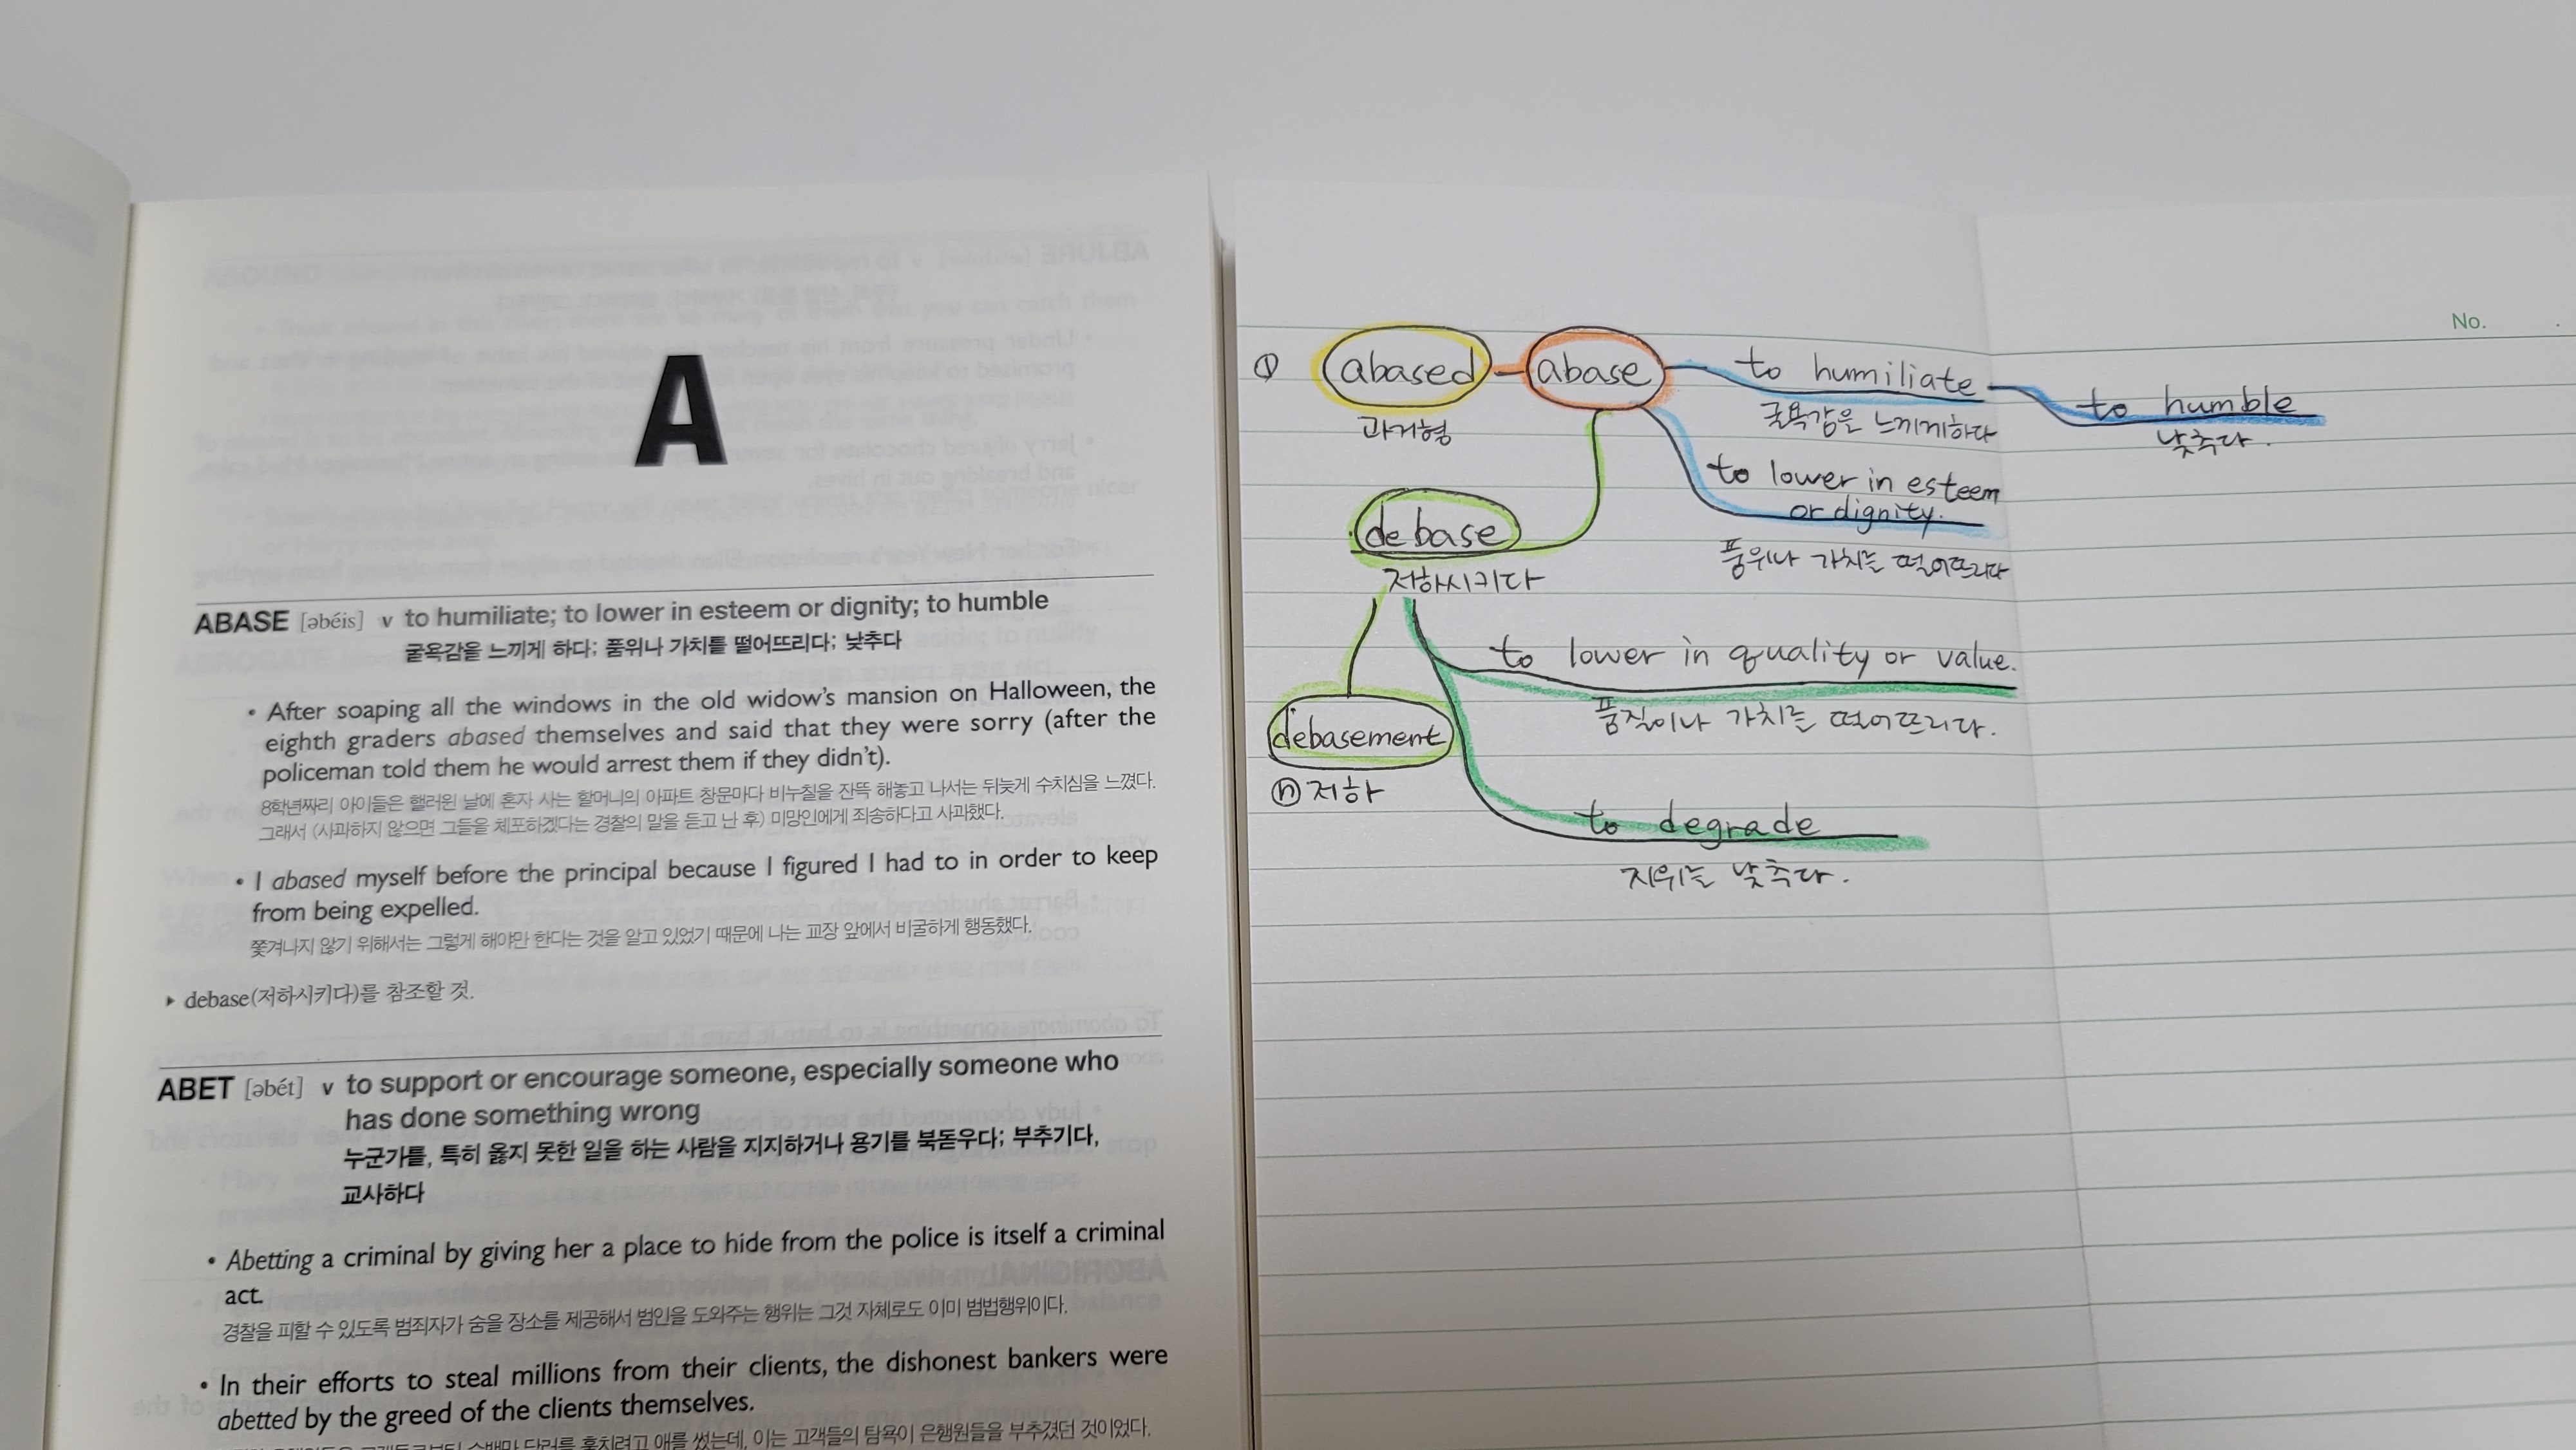 A
ABASE [əbéis] v to humiliate; to lower in esteem or dignity; to humble
굴욕감을 느끼게 하다; 품위나 가치를 떨어뜨리다; 낮추다
• After soaping all the windows in the old widow's mansion on Halloween, the
eighth graders abased themselves and said that they were sorry (after the
policeman told them he would arrest them if they didn't).
8학년짜리 아이들은 핼러윈 날에 혼자 사는 할머니의 아파트 창문마다 비누칠을 잔뜩 해놓고 나서는 뒤늦게 수치심을 느꼈다.
그래서 (사과하지 않으면 그들을 체포하겠다는 경찰의 말을 듣고 난 후) 미망인에게 죄송하다고 사과했다.
• I abased myself before the principal because I figured I had to in order to keep
from being expelled.
쫓겨나지 않기 위해서는 그렇게 해야만 한다는 것을 알고 있었기 때문에 나는 교장 앞에서 비굴하게 행동했다.
▸ debase(저하시키다)를 참조할 것.
ABET [əbét] v to support or encourage someone, especially someone who
has done something wrong
누군가를, 특히 옳지 못한 일을 하는 사람을 지지하거나 용기를 북돋우다; 부추기다,
교사하다
• Abetting a criminal by giving her a place to hide from the police is itself a criminal
act.
경찰을 피할 수 있도록 범죄자가 숨을 장소를 제공해서 범인을 도와주는 행위는 그것 자체로도 이미 범법행위이다.
• In their efforts to steal millions from their clients, the dishonest bankers were
abetted by the greed of the clients themselves.
수백만 달러를 훔치려고 애를 썼는데, 이는 고객들의 탐욕이 은행원들을 부추겼던 것이었다.
No.
① abased abase to humiliate to humble
과거형 굴욕감을 느끼게하다 낮추다.
to lower in esteem
or dignity.
품위나 가치를 떨어뜨리다
debase
저하시키다
to lower in quality or value.
품질이나 가치를 떨어뜨리다.
debasement
ⓝ 저하
to degrade
지위를 낮추다.